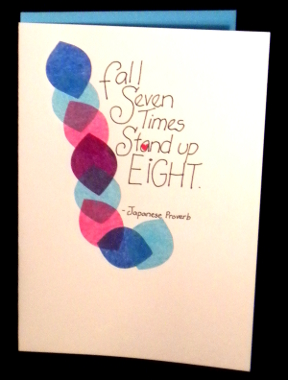 fall
Seven
Times
Stand up
EiGHT.
- Japanese Proverb